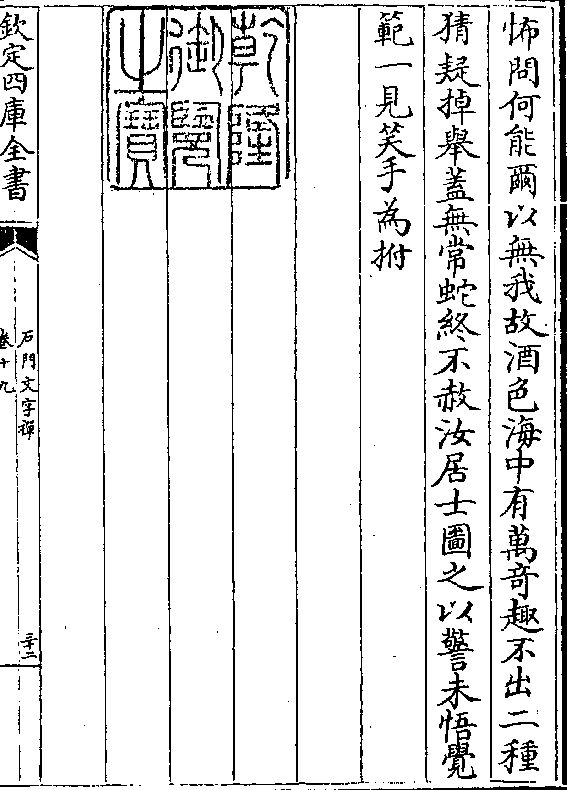 怖問何能爾以無我故酒色海中有萬奇趣不出二種
猜疑掉舉蓋無常蛇終不赦汝居士圖之以警未悟覺
範一見笑手為拊
乾隆御覽之寶
欽定四庫全書
石門文字禪
卷十九
三十二